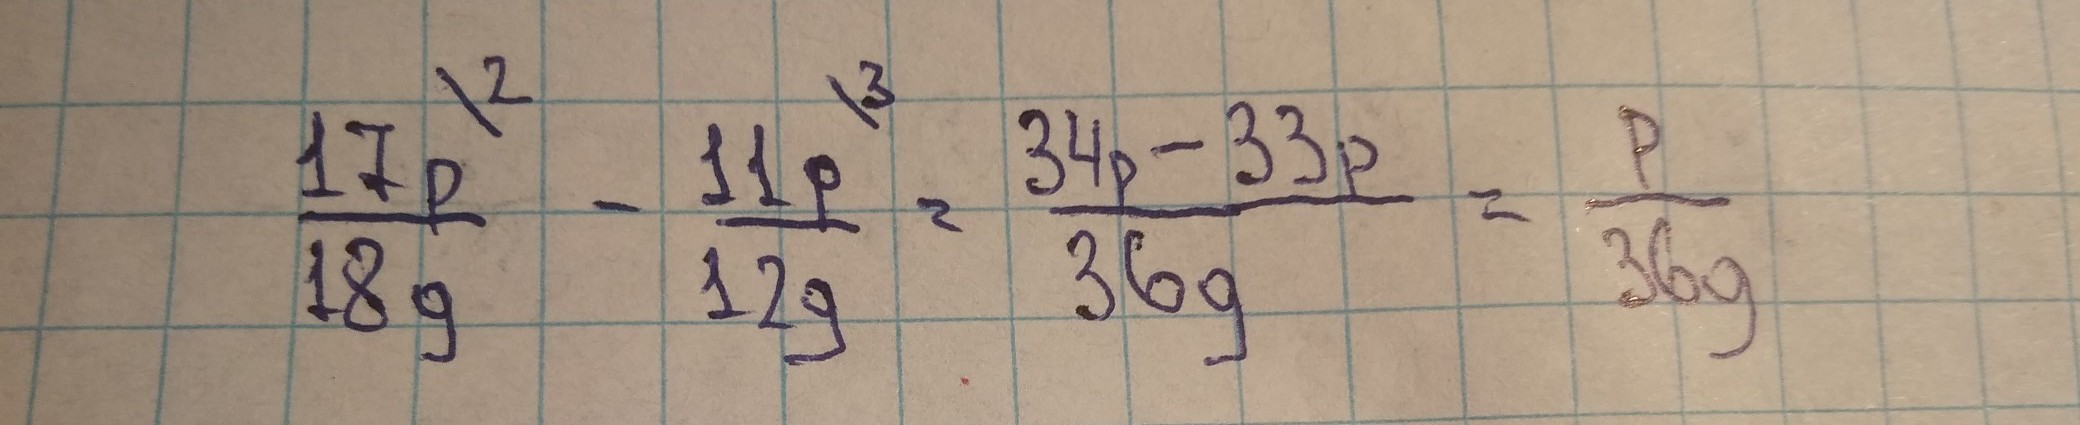 17p\2 / 18g - 11p\3 / 12g = 34p - 33p / 36g = p / 36g